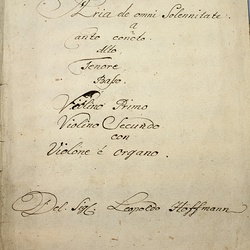 Aria de omni Solennitate.
a
Canto conc:to
Alto
Tenore
Basso.
Violino Primo
Violino Secundo
con
Violone è organo.
Del: Sig: Leopoldo Hoffmann